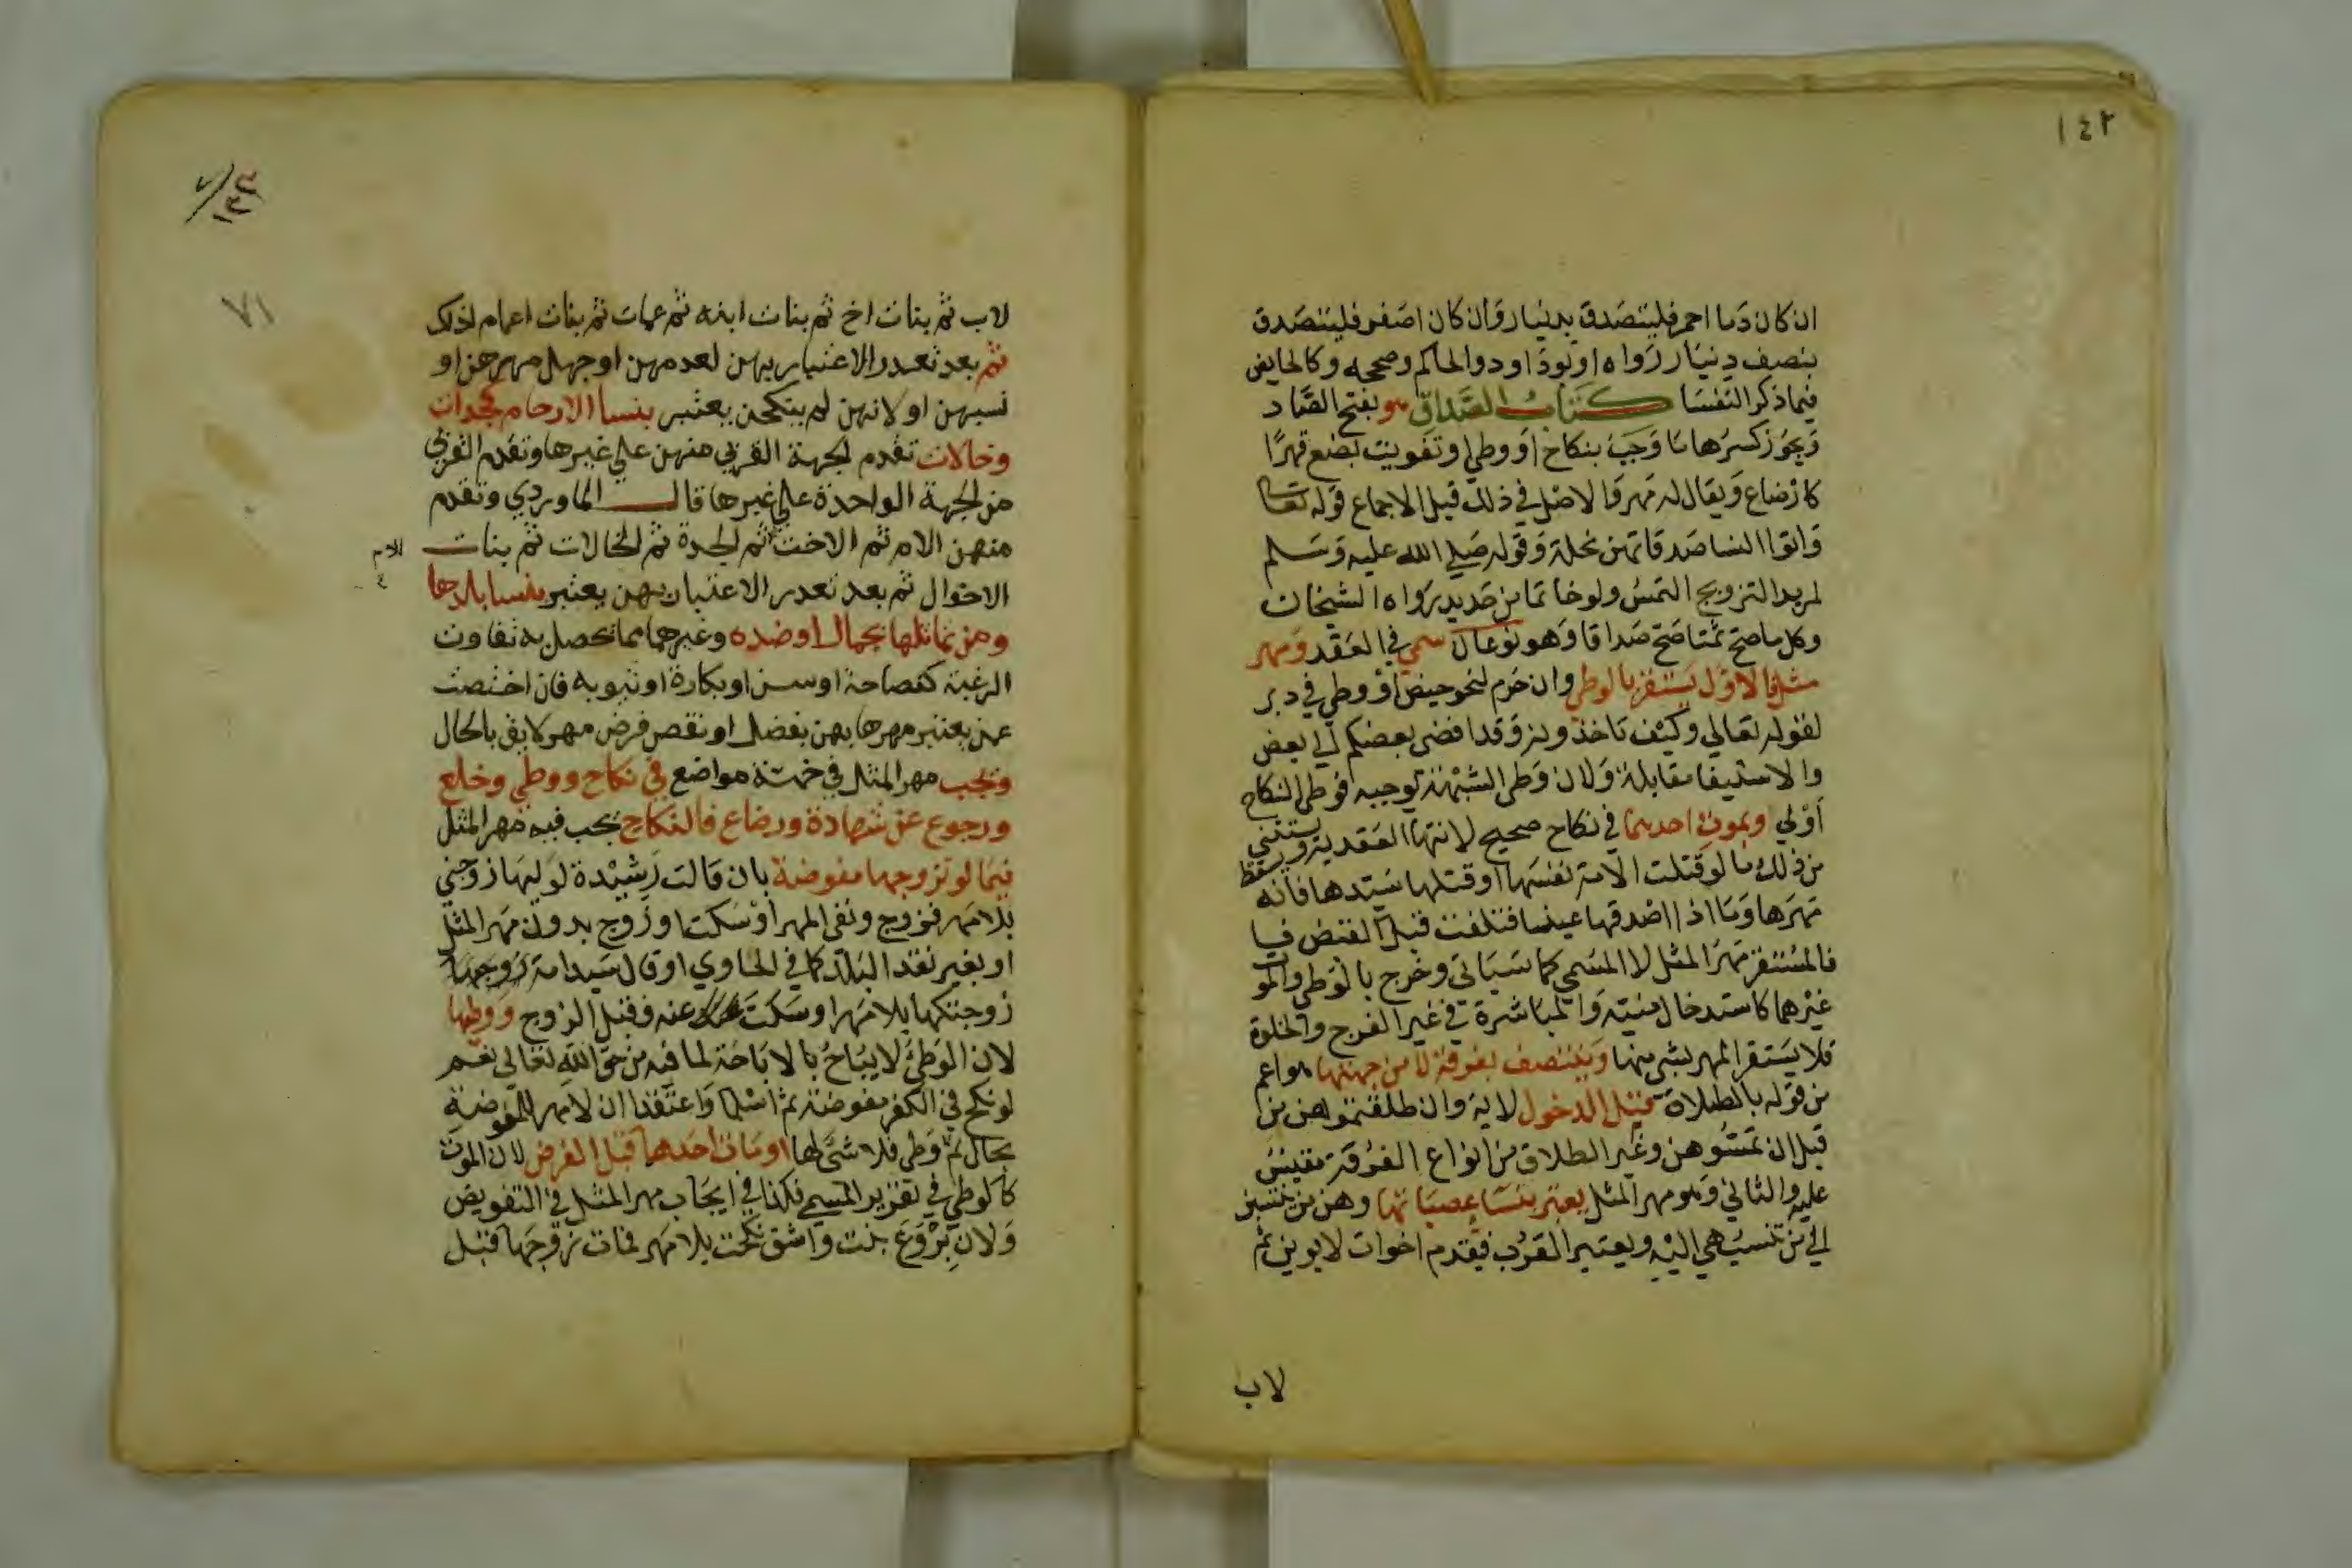 ١٤٢
ان كان دما احمر فليتصدق بدينار وان كان اصفر فليتصدق
بنصف دينار رواه ابوداودوالحاكم وصححه وكالحايض
فيما ذكر النفسا كتاب الصداق هو بفتح الصاد
ويجوز كسرها ما وجب بنكاح او وطي او تفويت بضع قهرا
كارضاع ويقال له مهر والاصل في ذلك قبل الاجماع قوله تعا
واتوا النسا صدقاتهن نحلة وقوله صلي الله عليه وسلم
لمريد التزويج التمس ولو خاتما من حديد رواه الشيخان
وكل ما صح ثمنا صح صداقا وهو نوعان سمي في العقد ومهر
مثل فالاول يستقر بالوطي وان حرم لنحو حيض او وطي في دبر
لقوله تعالي وكيف تاخذونه وقد افضي بعضكم الي بعض
والاستيفا مقابلة ولان وطي الشبهة توجبه فوطي النكاح
اولي وبموت احدهما في نكاح صحيح لانتها العقد به ويستثني
من ذلك ما لو قتلت الامة نفسها او قتلها سيدها فانه يسقط
مهرها وما اذا اصدقها عينا فتلفت قبل القبض فيا
فالمستقر مهر المثل لا المسمي كما سياتي وخرج بالوطي والموت
غيرهما كاستدخال منيه والمباشرة في غير الفرج والخلوة
فلا يستقر المهر بشي منها ويتنصف بفرقة لا من جهتها هو اعم
من قوله بالطلاق قبل الدخول لاية وان طلقتموهن من
قبل ان تمسوهن وغير الطلاق من انواع الفرقة مقيس
عليه والثاني وهو مهر المثل يعتبر بنسا عصباتها وهن من تنتسب
الي من تنسب هي اليه ويعتبر القرب فيقدم اخوات لابوين ثم
لاب
٧١
لاب ثم بنات اخ ثم بنات ابنه ثم عمات ثم بنات اعمام لذلك
ثم بعد تعذر الاعتبار بهن لعدمهن او جهل مهرهن او
نسبهن او لانهن لم ينكحن يعتبر بنسا الارحام كجدات
وخالات تقدم لجهة القربي منهن علي غيرها وتقدم القربي
من لجهة الواحدة علي غيرها قال الماوردي وتقدم
منهن الام ثم الاخت ثم لجدة ثم لخالات ثم بنات
الام
الاخوال ثم بعد تعذر الاعتبار بهن يعتبر بنسا بلدها
ومن تماثلها بجمال او ضده وغيرهما مما تحصل به تفاوت
الرغبة كفصاحة او سن او بكارة او ثيوبه فان اختصت
عمن يعتبر مهرها بهن بفضل او نقص فرض مهر لايق بالحال
وتجب مهر المثل في خمسة مواضع في نكاح ووطي وخلع
ورجوع عن شهادة ورضاع فالنكاح يجب فيه مهر المثل
فيما لو تزوجها مفوضة بان قالت رشيدة لوليها زوجني
بلا مهر فزوج ونفي المهر او سكت او زوج بدون مهر المثل
او بغير نقد البلد كما في الحاوي او قال سيد امة لزوجها
زوجتكها بلا مهر او سكت عنه وقبل الزوج ووطيها
لان الوطي لا يباح بالاباحة لما فيه من حق الله تعالي نعم
لو نكح في الكفر مفوضة ثم اسلما واعتقدا ان لا مهر للمفوضة
بحال ثم وطي فلا شي لها او مات احدهما قبل الفرض لان الموت
كالوطي في تقرير المسمي فكذا في ايجاب مهر المثل في التفويض
ولان بروع بنت واشق نكحت بلا مهر فمات زوجها قبل